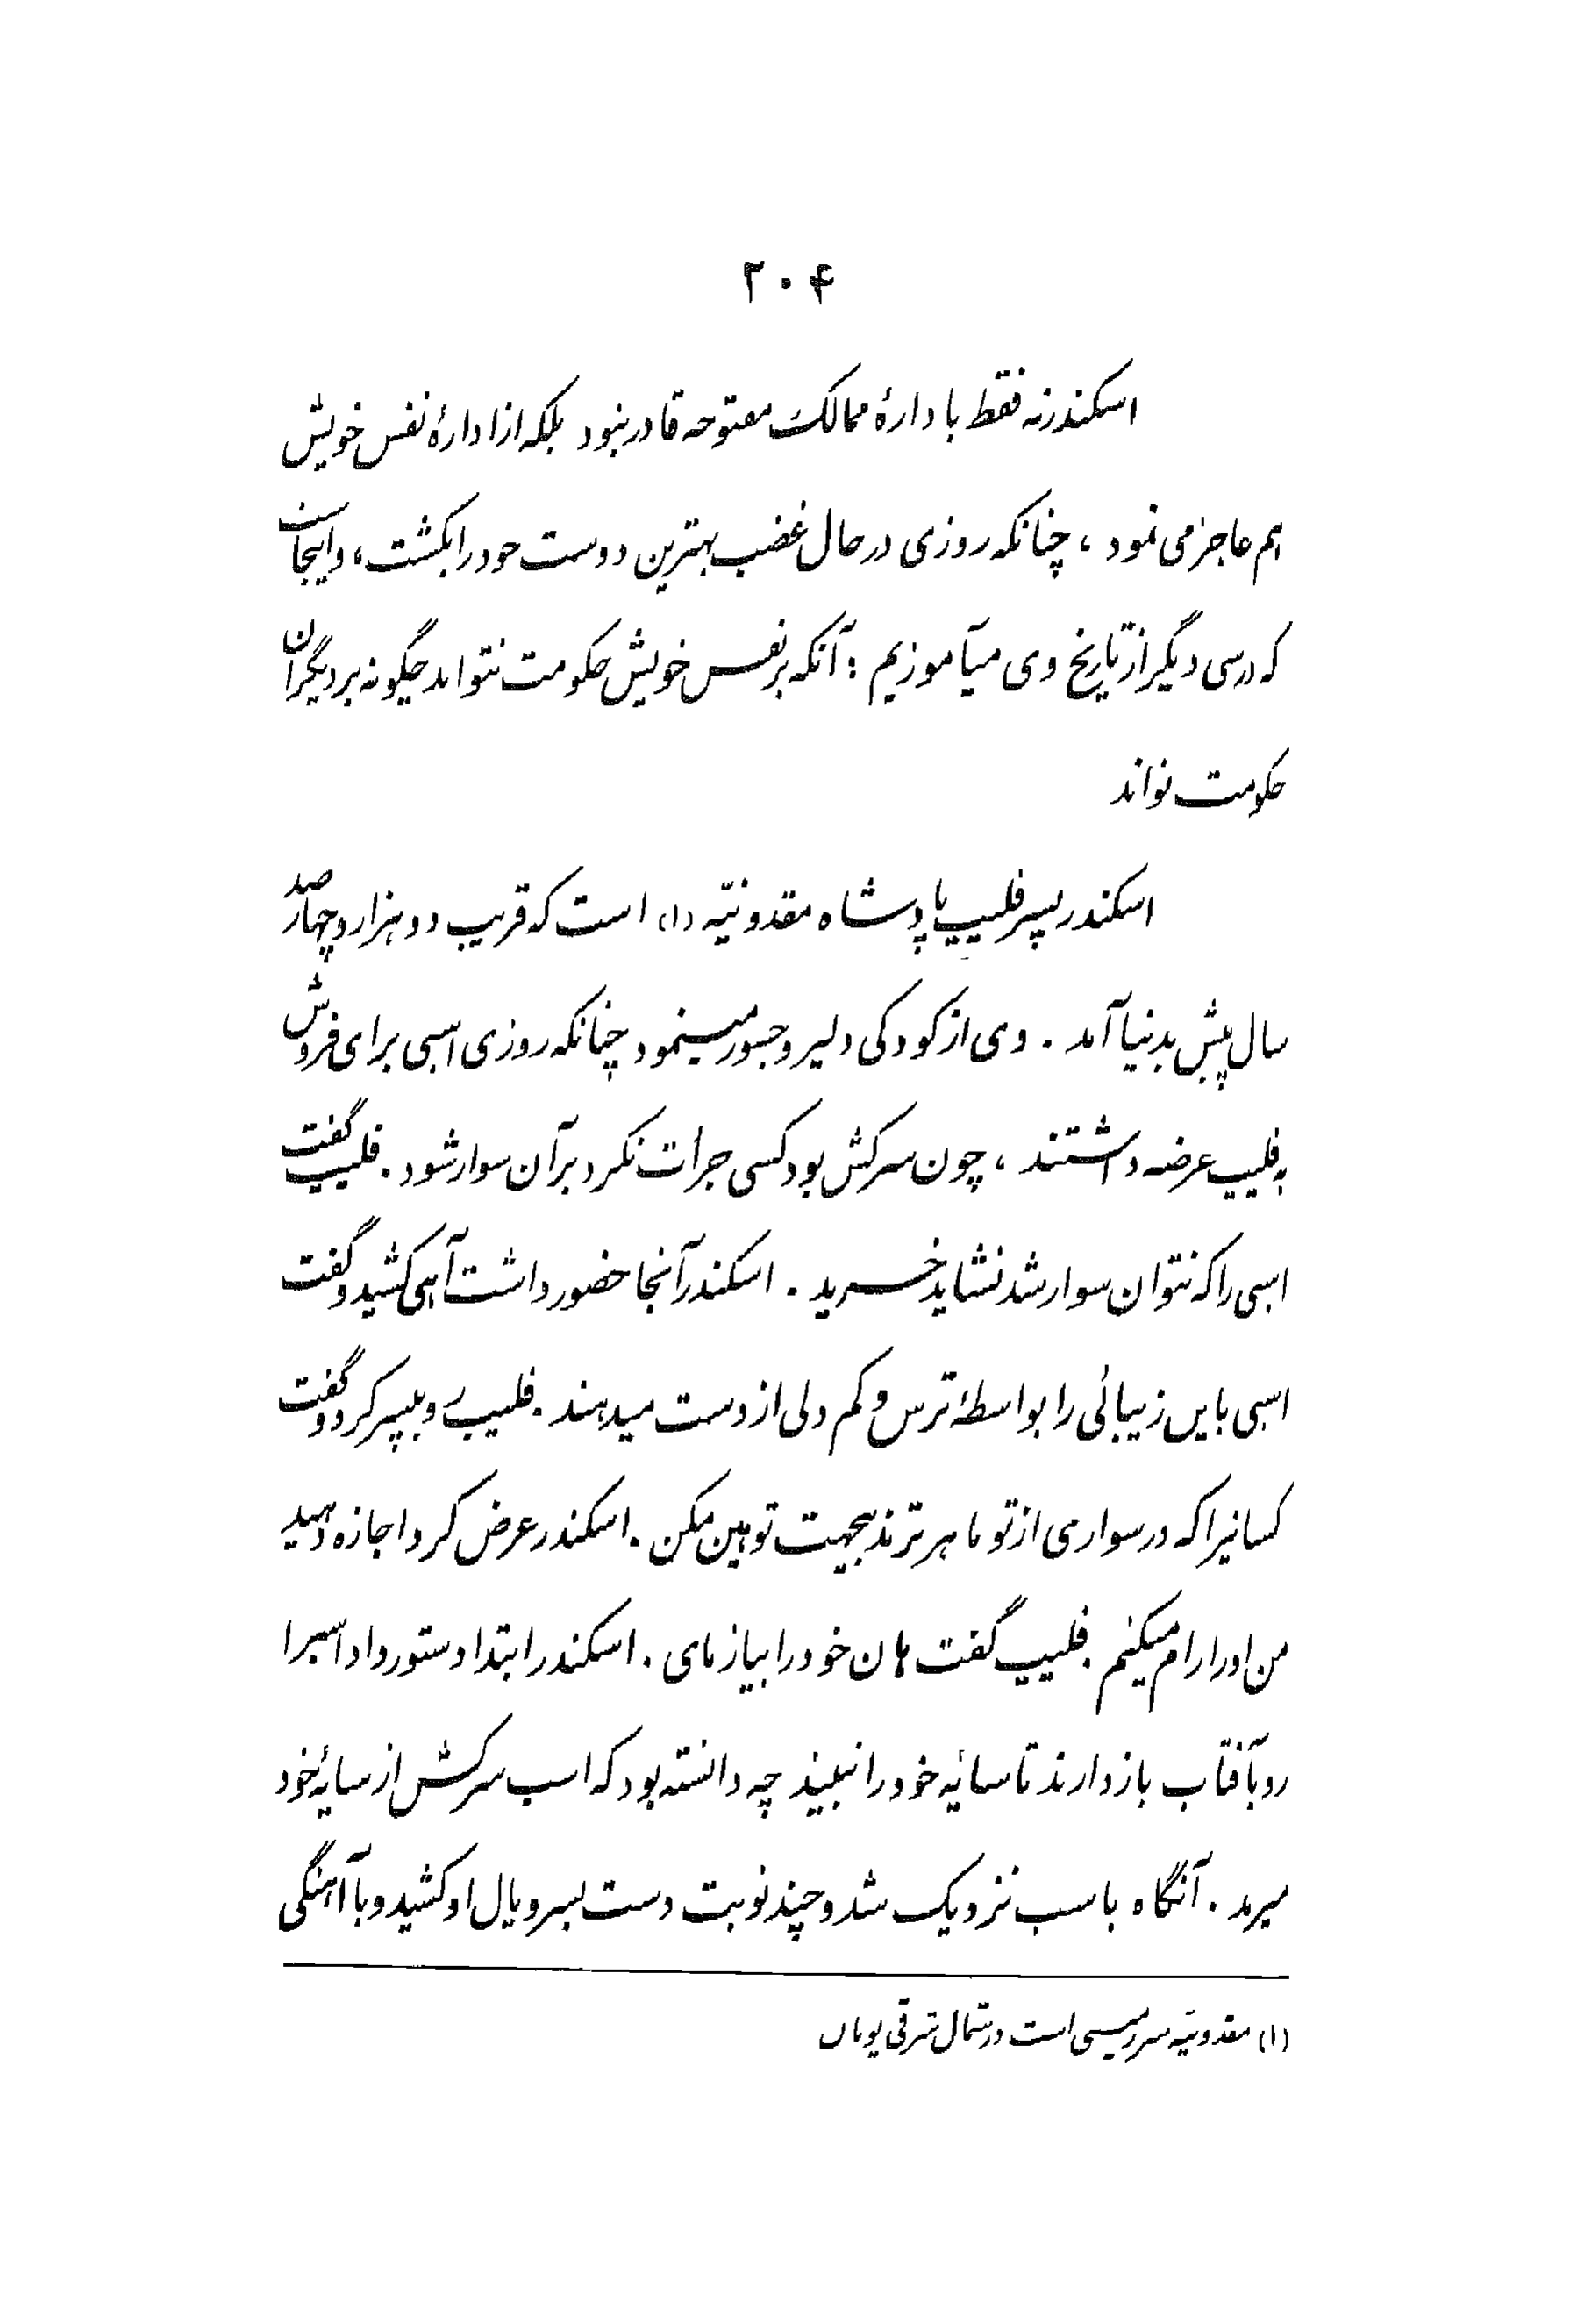 ۲۰۴
اسکندر نه فقط باداره ممالک مفتوحه قادر نبود بلکه از ادارهٔ نفس خویش
هم عاجز می نمود ، چنانکه روزی در حال غضب بهترین دوست خود را بکشت ، و اینجاست
که درسی دیگر از تاریخ وی میآموزیم : آنکه بر نفس خویش حکومت نتواند چگونه بر دیگران
حکومت تواند
اسکندر پسر فلیپ پادشاه مقدونیّه (۱) است که قریب دو هزار و چهارصد
سال پیش بدنیا آمد . وی از کودکی دلیر و جسور مینمود چنانکه روزی اسبی برای فروش
به فلیپ عرضه داشتند ، چون سرکش بود کسی جرأت نکرد بر آن سوار شود . فلیپ گفت
اسبی را که نتوان سوار شد نشاید خرید . اسکندر آنجا حضور داشت آهی کشید و گفت
اسبی باین زیبائی را بواسطهٔ ترس و کم دلی از دست میدهند . فلیپ رو بپسر کرد و گفت
کسانیرا که در سواری از تو ماهرترند بیجهت توهین مکن . اسکندر عرض کرد اجازه دهید
من او را رام میکنم . فلیپ گفت هان خود را بیازمای . اسکندر ابتدا دستور داد اسبرا
رو بآفتاب بازدارند تا سایهٔ خود را نبیند چه دانسته بود که اسب سرکش از سایهٔ خود
میرمد . آنگاه باسب نزدیک شد و چند نوبت دست بسر و یال او کشید و با آهنگی
(۱) مقدونیّه سرزمینی است در شمال شرقی یونان